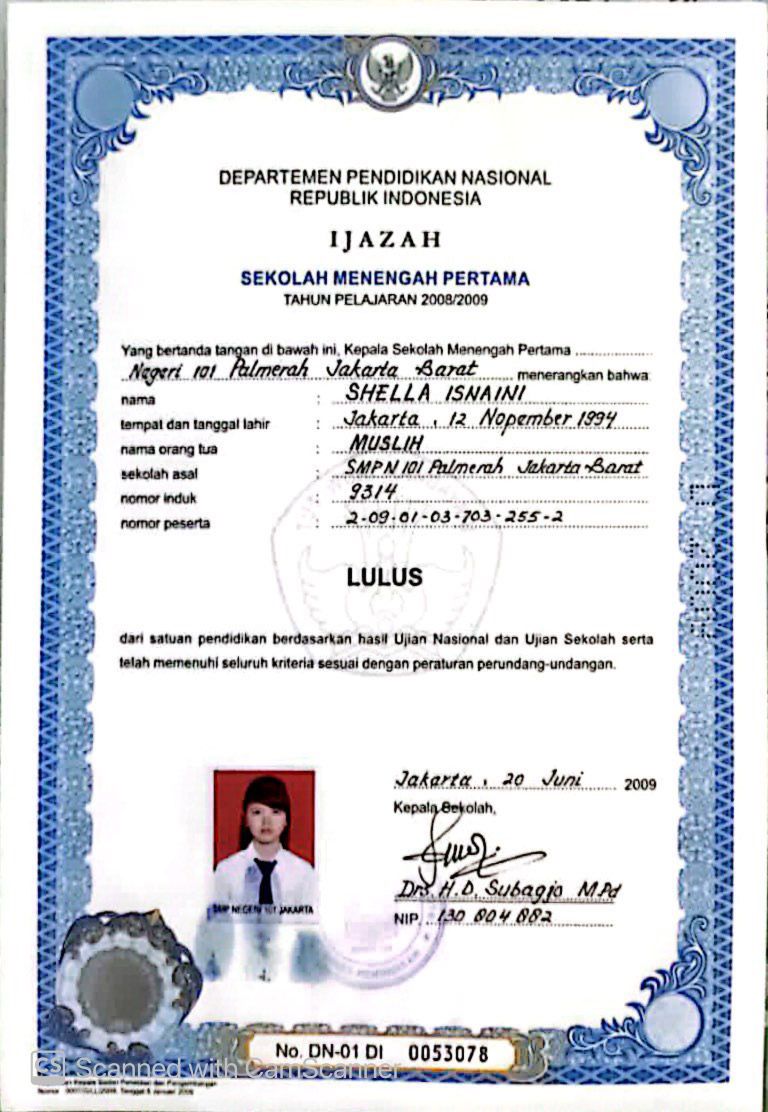 DEPARTEMEN PENDIDIKAN NASIONAL
REPUBLIK INDONESIA
IJAZAH
SEKOLAH MENENGAH PERTAMA
TAHUN PELAJARAN 2008/2009
Yang bertanda tangan di bawah ini, Kepala Sekolah Menengah Pertama ..................
Negeri 101 Palmerah Jakarta Barat menerangkan bahwa:
nama : SHELLA ISNAINI
tempat dan tanggal lahir : Jakarta, 12 Nopember 1994
nama orang tua : MUSLIH
sekolah asal : SMPN 101 Palmerah Jakarta Barat
nomor induk : 9314
nomor peserta : 2-09-01-03-703-255-2
LULUS
dari satuan pendidikan berdasarkan hasil Ujian Nasional dan Ujian Sekolah serta
telah memenuhi seluruh kriteria sesuai dengan peraturan perundang-undangan.
Jakarta, 20 Juni 2009
Kepala Sekolah,
Drs. H.D. Subagjo M.Pd
NIP. 130 804 882
SMP NEGERI 101 JAKARTA
No. DN-01 DI 0053078
CS Scanned with CamScanner
Kepala Badan Penelitian dan Pengembangan